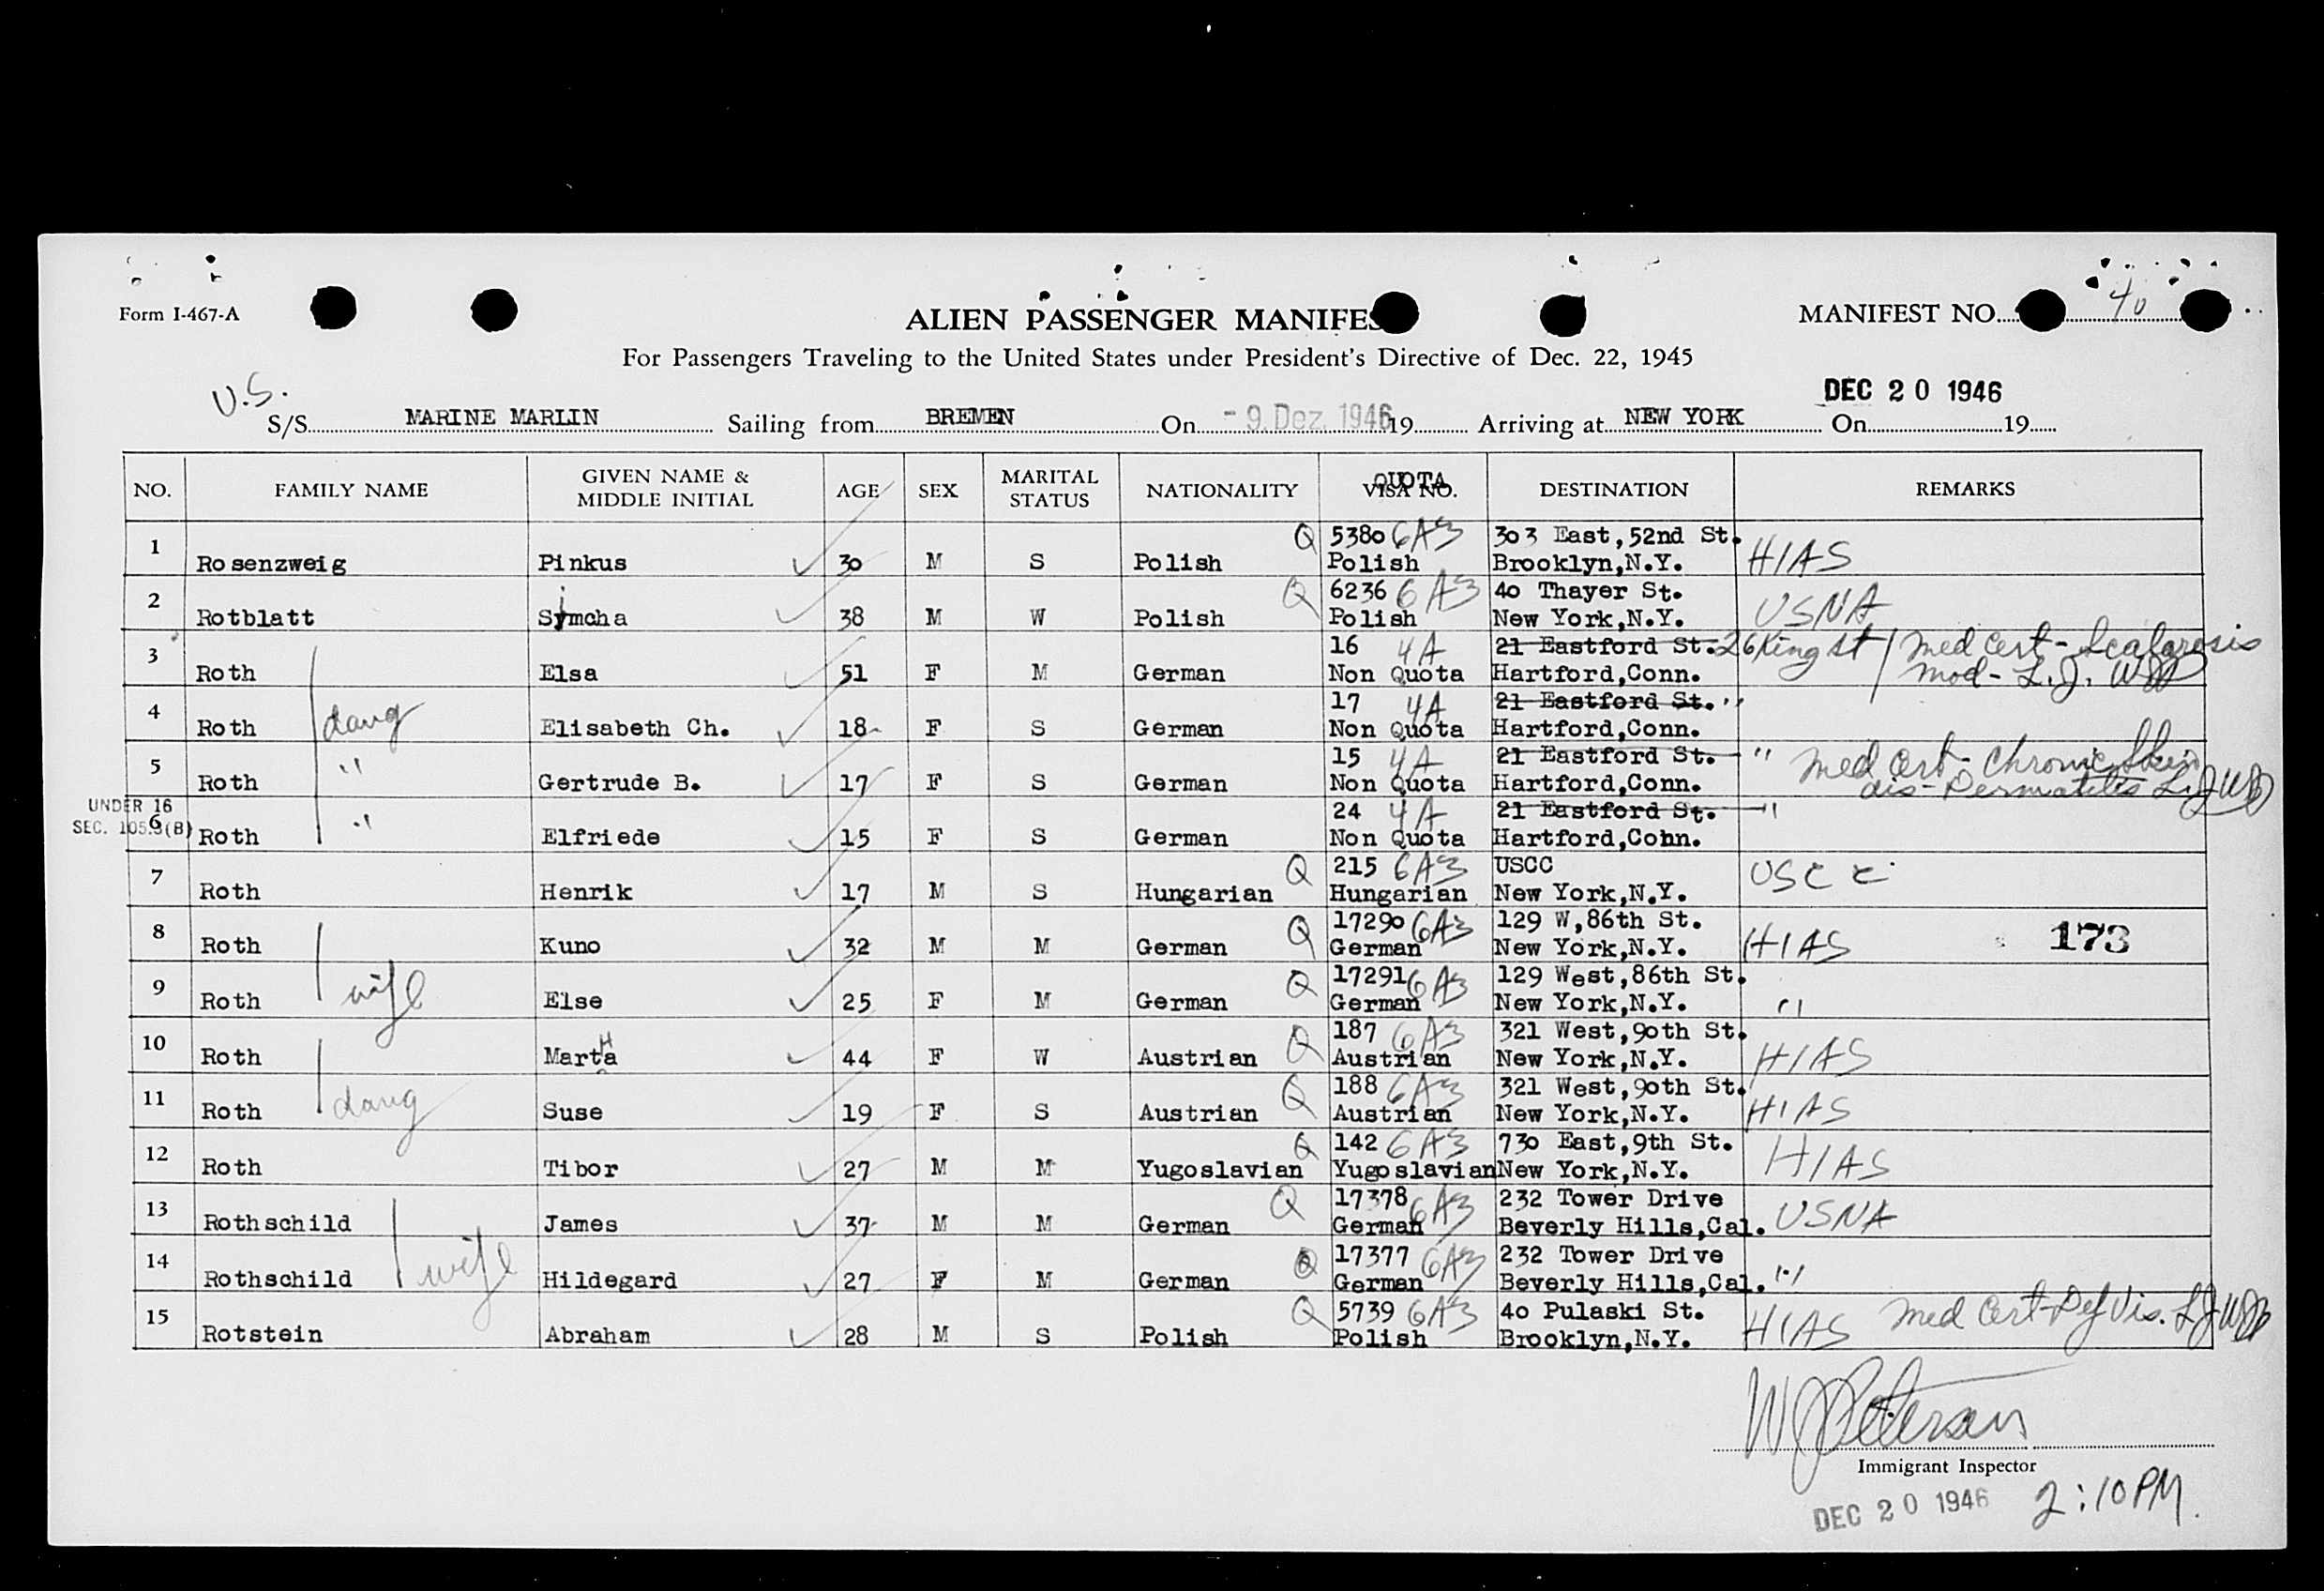 Form I-467-A
ALIEN PASSENGER MANIFES
MANIFEST NO. 40
For Passengers Traveling to the United States under President's Directive of Dec. 22, 1945
DEC 20 1946
U.S.
S/S MARINE MARLIN Sailing from BREMEN On - 9. Dez. 1946 19 Arriving at NEW YORK On 19
NO. FAMILY NAME GIVEN NAME & MIDDLE INITIAL AGE SEX MARITAL STATUS NATIONALITY QUOTA VISA NO. DESTINATION REMARKS
1 Q 5380 6A3 303 East,52nd St.
Rosenzweig Pinkus 30 M S Polish Polish Brooklyn,N.Y. HIAS
2 Q 6236 6A3 40 Thayer St.
Rotblatt Simcha 38 M W Polish Polish New York,N.Y. USNA
3 16 4A 21 Eastford St. 26 King St / Med Cert -
Roth Elsa 51 F M German Non Quota Hartford,Conn. Mod - L.J.
4 17 4A 21 Eastford St. "
Roth daug Elisabeth Ch. 18 F S German Non Quota Hartford,Conn.
5 15 4A 21 Eastford St. " Med Cert - Chronic Skin
Roth " Gertrude B. 17 F S German Non Quota Hartford,Conn. dis - Dermatitis
UNDER 16
SEC. 105.3(B)
6 24 4A 21 Eastford St. "
Roth " Elfriede 15 F S German Non Quota Hartford,Conn.
7 Q 215 6A3 USCC USCC
Roth Henrik 17 M S Hungarian Hungarian New York,N.Y.
8 Q 17290 6A3 129 W,86th St.
Roth Kuno 32 M M German German New York,N.Y. HIAS 173
9 Q 17291 6A3 129 West,86th St.
Roth wife Else 25 F M German German New York,N.Y. "
10 Q 187 6A3 321 West,90th St.
Roth MartHa 44 F W Austrian Austrian New York,N.Y. HIAS
11 Q 188 6A3 321 West,90th St.
Roth daug Suse 19 F S Austrian Austrian New York,N.Y. HIAS
12 Q 142 6A3 730 East,9th St.
Roth Tibor 27 M M Yugoslavian Yugoslavian New York,N.Y. HIAS
13 Q 17378 6A3 232 Tower Drive
Rothschild James 37 M M German German Beverly Hills,Cal. USNA
14 Q 17377 6A3 232 Tower Drive
Rothschild wife Hildegard 27 F M German German Beverly Hills,Cal. "
15 Q 5739 6A3 40 Pulaski St.
Rotstein Abraham 28 M S Polish Polish Brooklyn,N.Y. HIAS Med Cert - Def Vis.
W J Peterson
Immigrant Inspector
DEC 20 1946 2:10 PM.